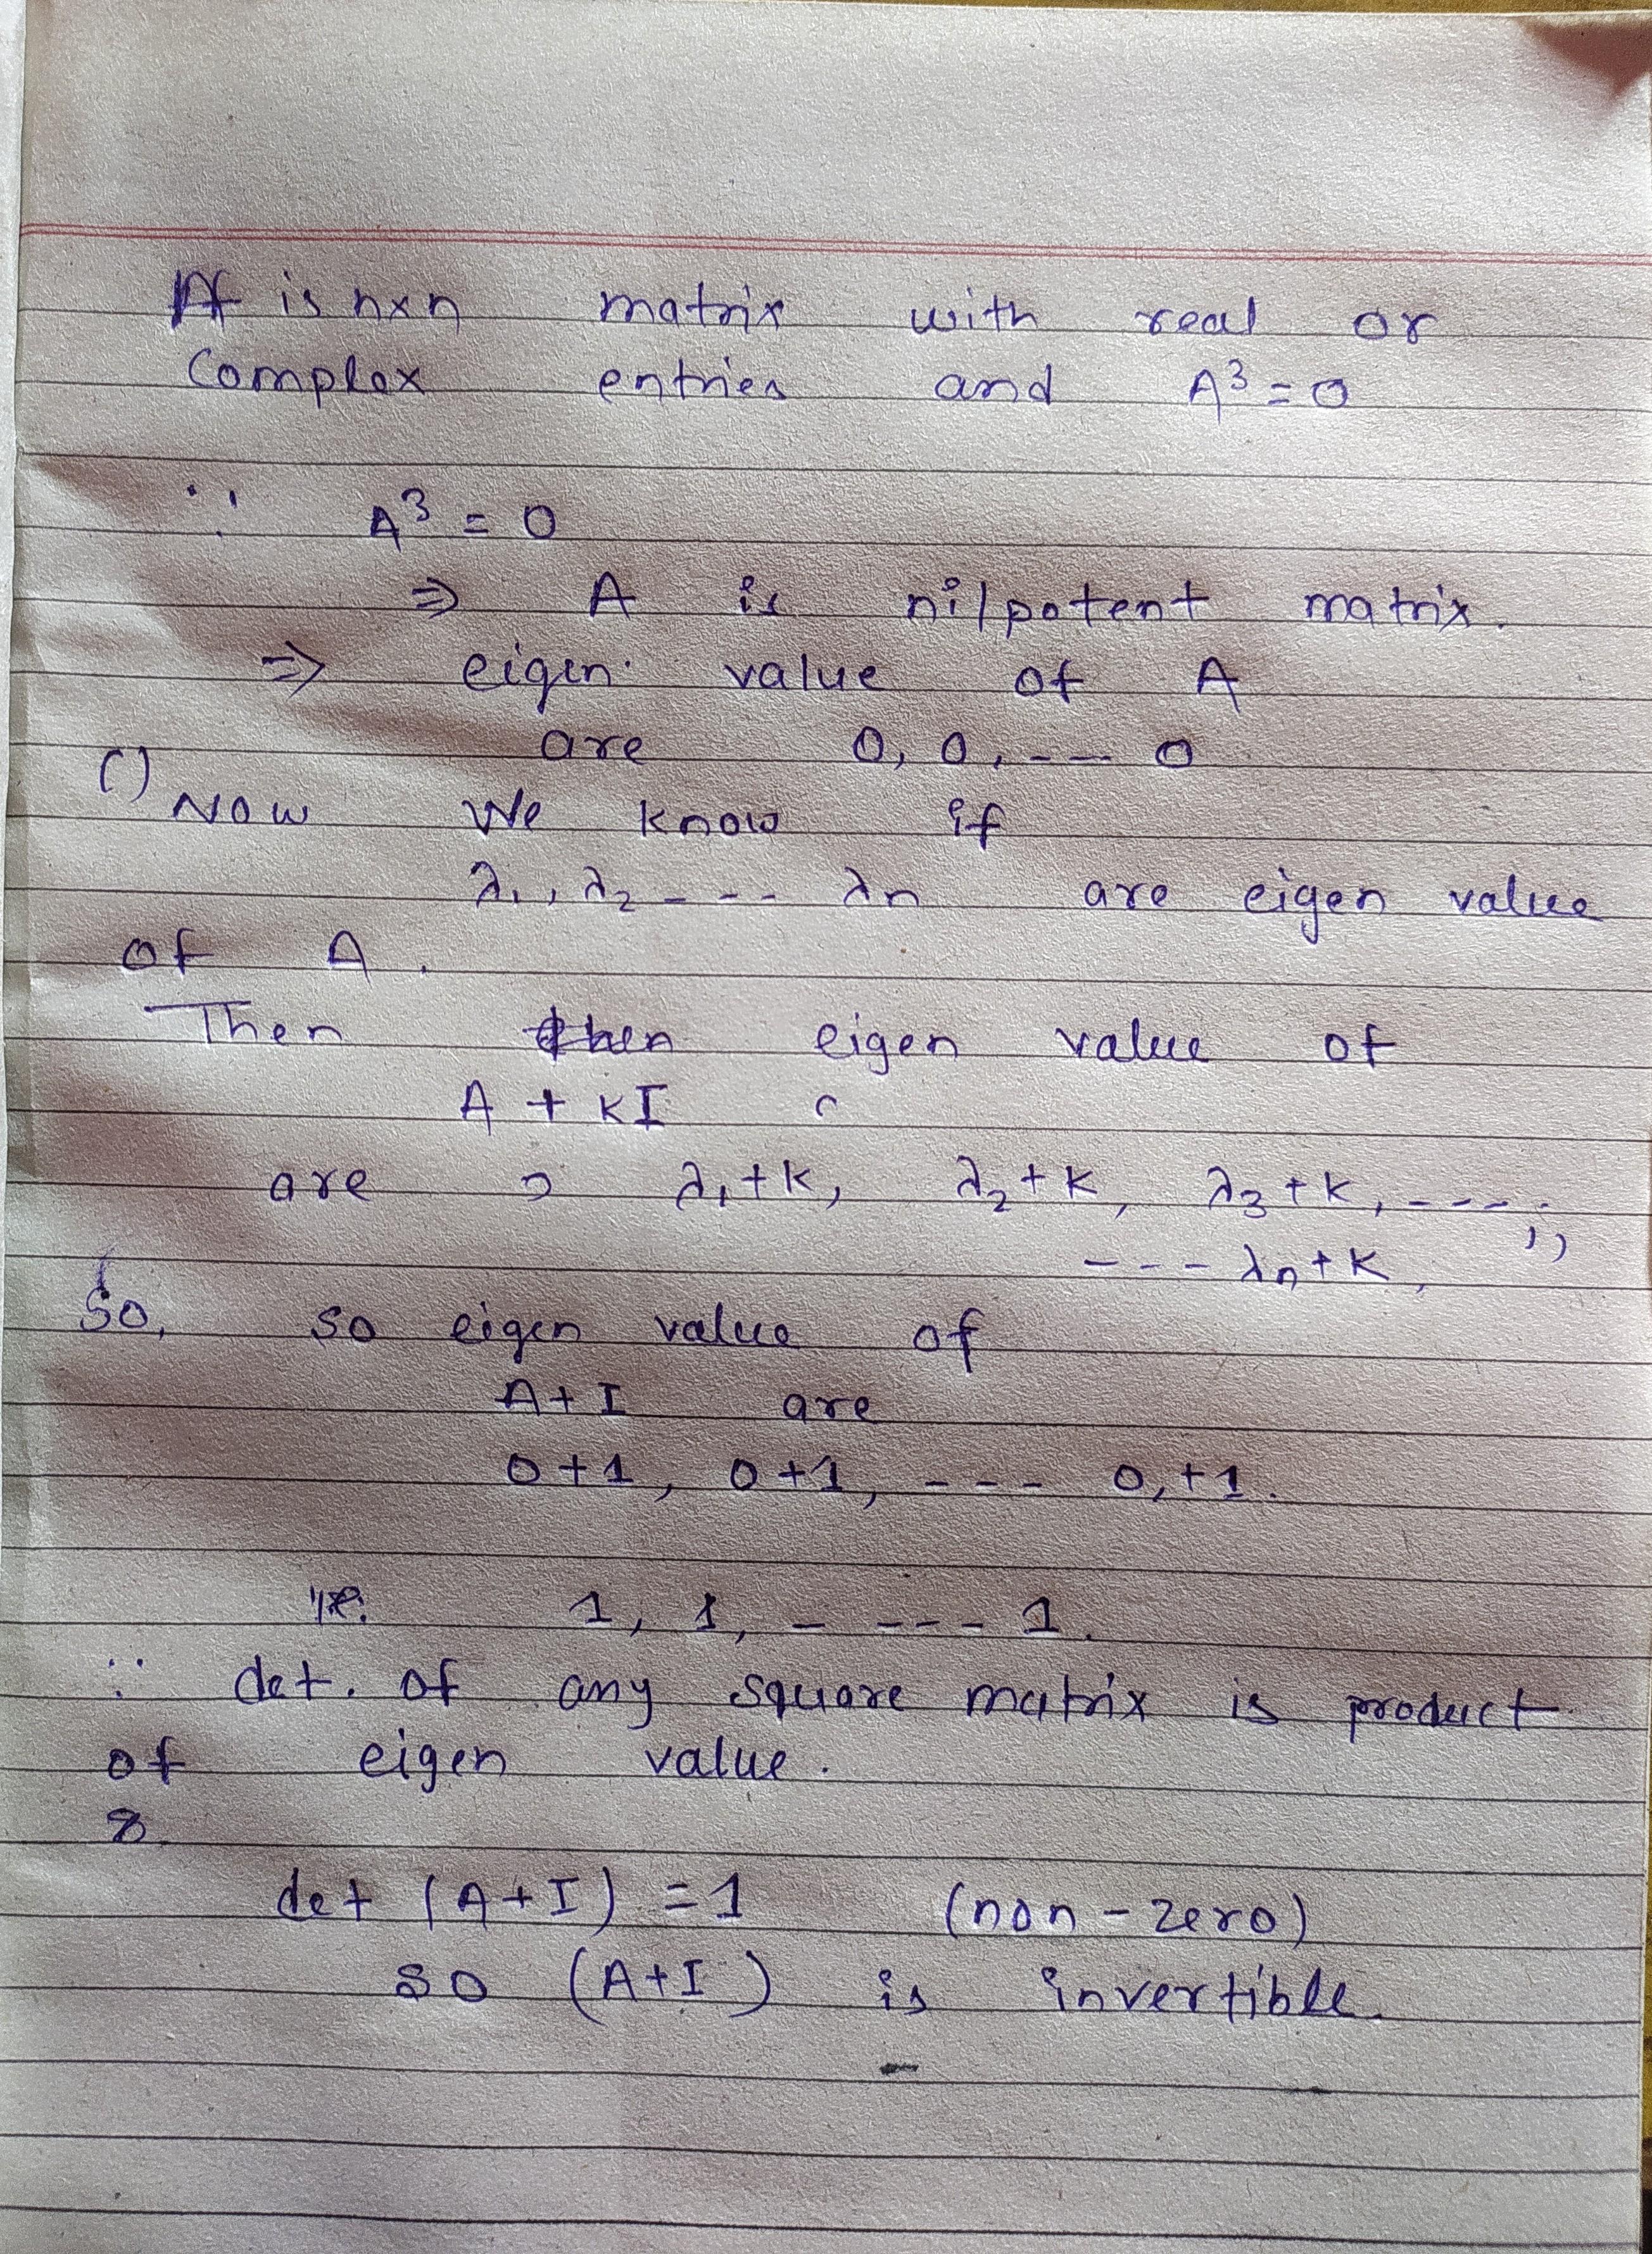 A is n×n matrix with real or
Complex entries and A³ = 0
∵ A³ = 0
⇒ A is nilpotent matrix.
⇒ eigen value of A
are 0, 0, --- 0
()
Now We know if
λ₁, λ₂ ---- λn are eigen value
of A.
Then then eigen value of
A + KI
are λ₁+K, λ₂+K, λ₃+K, ----,
--- λn+K,
So, so eigen value of
A+I are
0+1, 0+1, --- 0,+1.
ie. 1, 1, ---- 1.
∵ det. of any square matrix is product
of eigen value.
det (A+I) = 1 (non-zero)
so (A+I) is invertible